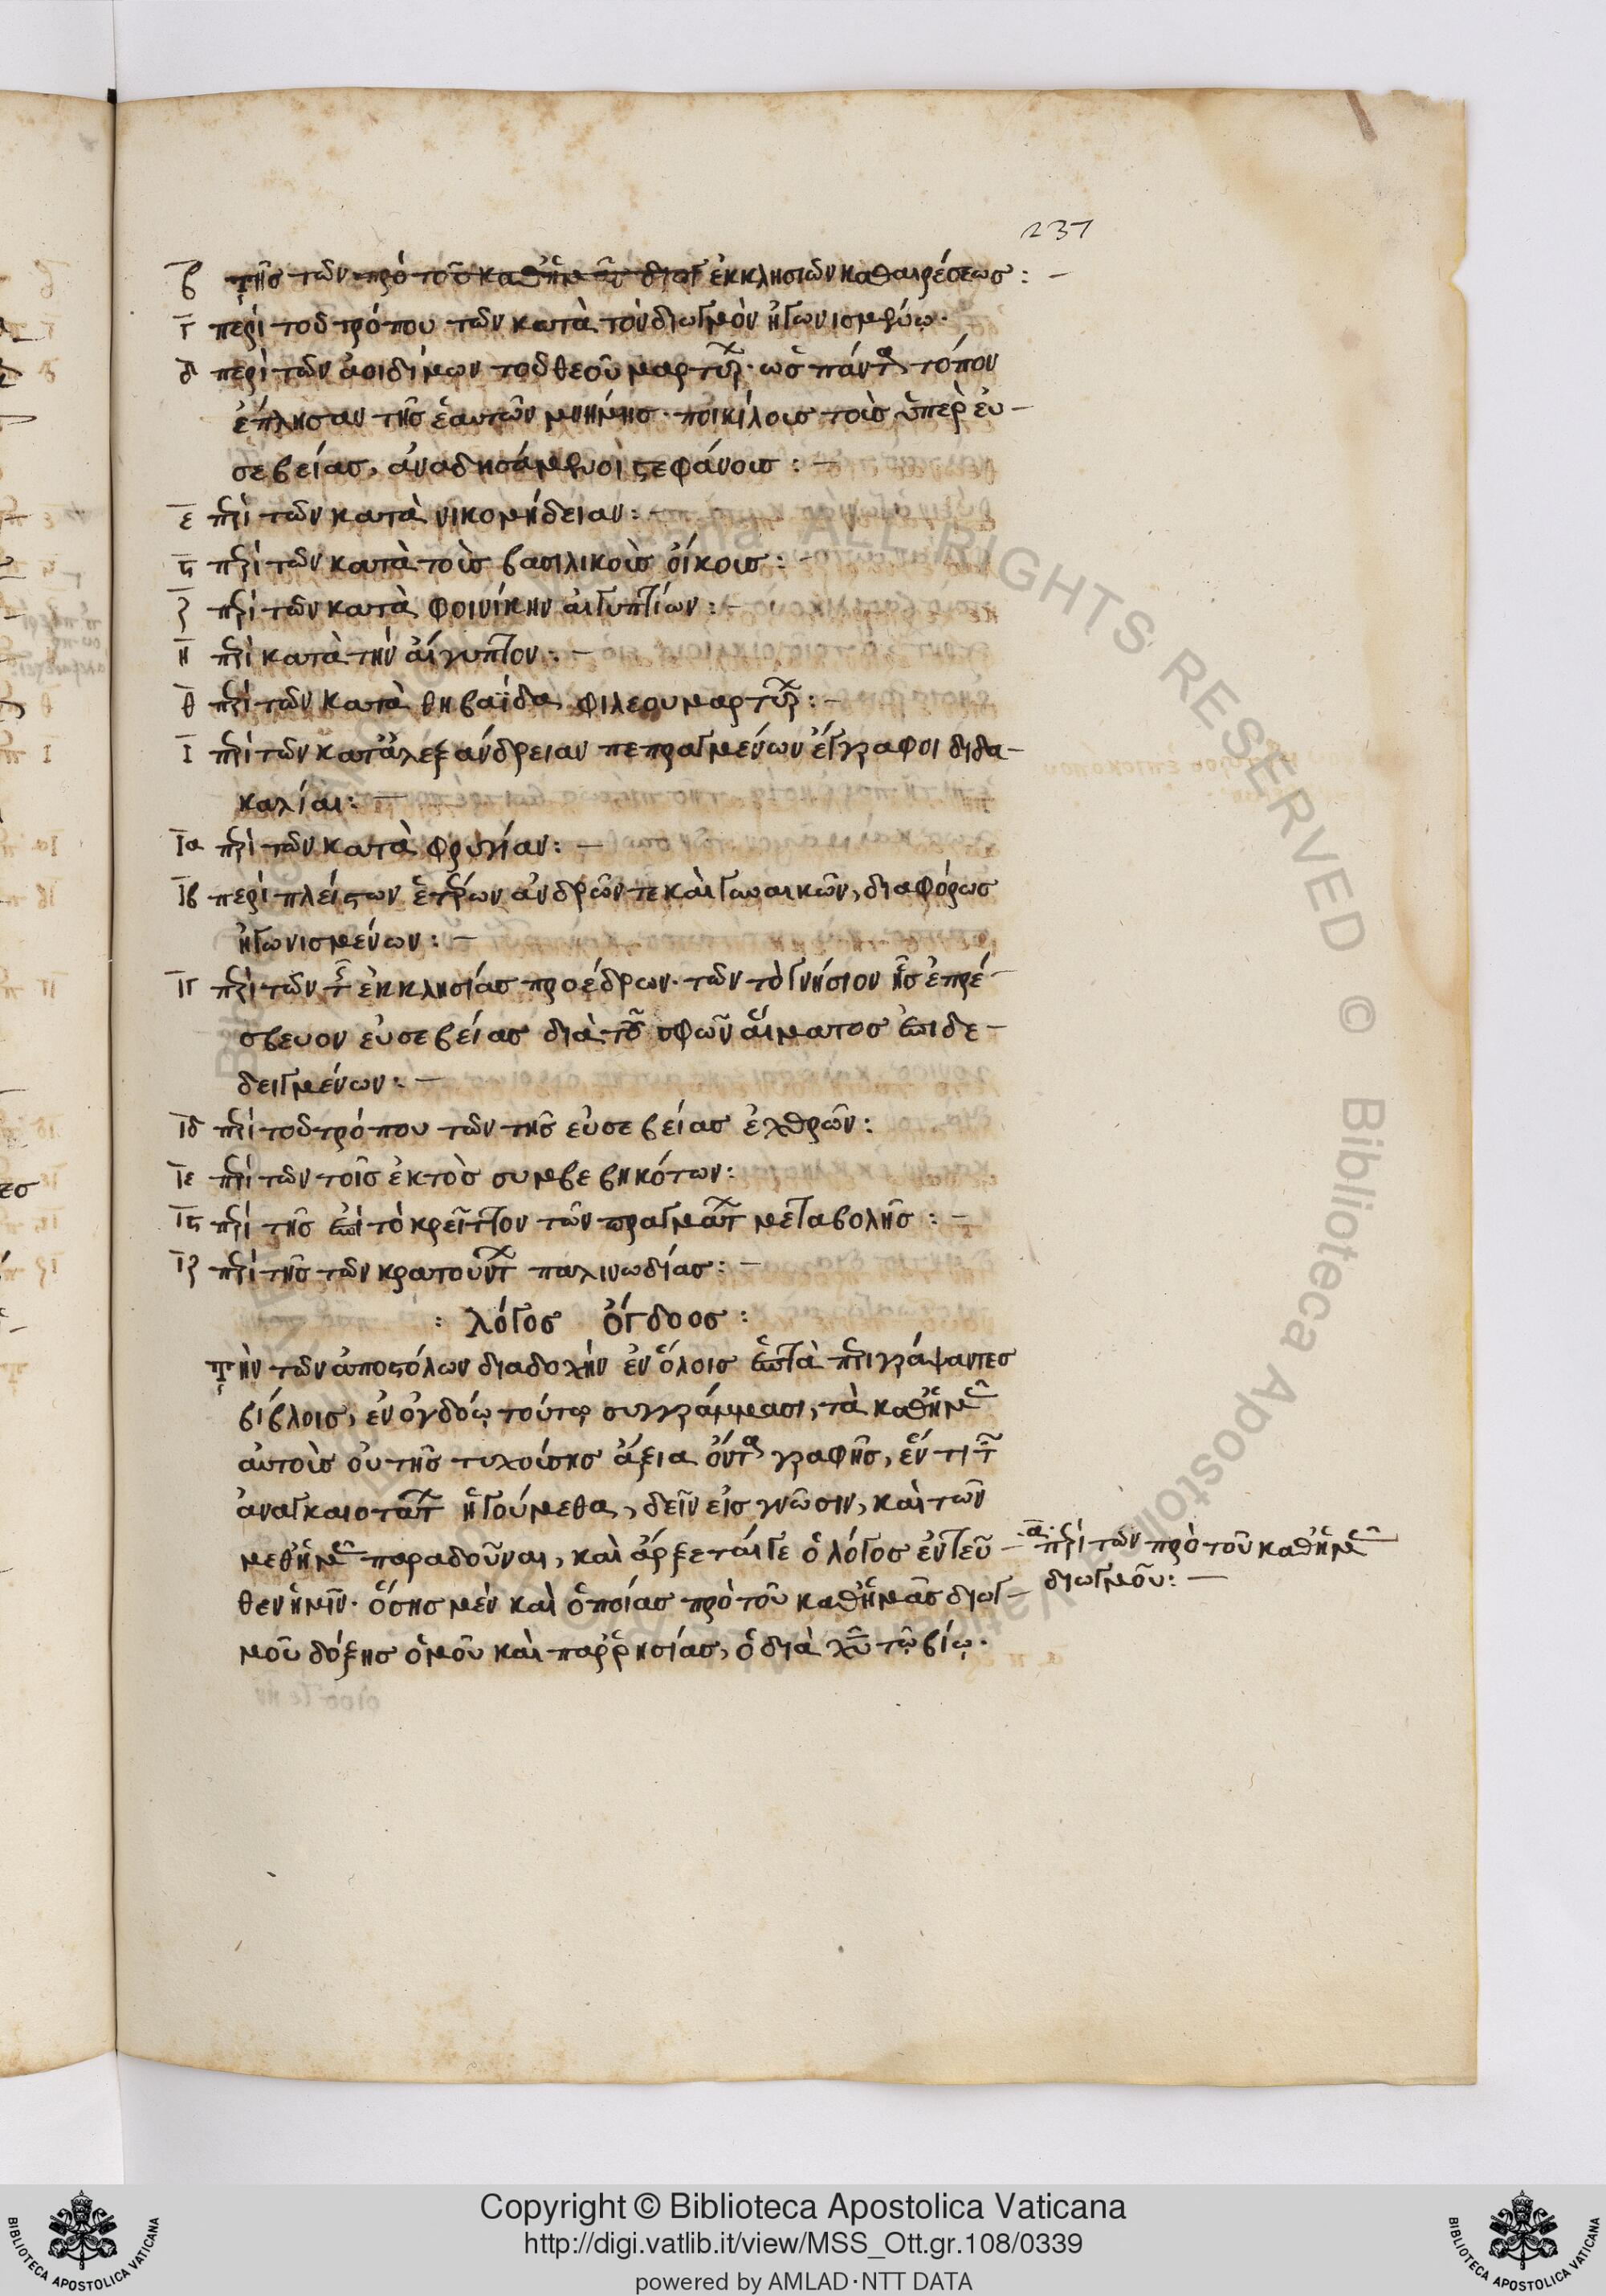 237
β τῆς τῶν πρὸ τοῦ καθ' ἡμᾶς διωγ ἐκκλησιῶν καθαιρέσεως: –
γ περὶ τοῦ τρόπου τῶν κατὰ τὸν διωγμὸν ἠγωνισμένω·
δ περὶ τῶν ἀοιδίμων τοῦ θεοῦ μαρτύρ· ὡς πάντα τόπον
ἐπλησαν τῆς ἑαυτῶν μνήμης· ποικίλοις τοῖς ὑπὲρ εὐ–
σεβείας, ἀναδησάμενοι στεφάνοις: –
ε περὶ τῶν κατὰ νικομήδειαν: –
ϛ περὶ τῶν κατὰ τοὺς βασιλικοὺς οἴκους: –
ζ περὶ τῶν κατὰ φοινίκην αἰγυπτίων: –
η περὶ κατὰ τὴν αἴγυπτον: –
θ περὶ τῶν κατὰ θηβαΐδα φιλεου μαρτύρ: –
ι περὶ τῶν κατ' ἀλεξάνδρειαν πεπραγμένων ἔγγραφοι διδα–
καλίαι: –
ια περὶ τῶν κατὰ φρυγίαν: –
ιβ περὶ πλείστων ἑτέρων ἀνδρῶν τε καὶ γυναικῶν, διαφόρως
ἠγωνισμένων: –
ιγ περὶ τῶν τῆς ἐκκλησίας προέδρων· τῶν τὸ γνήσιον ἧς ἐπρέ–
σβευον εὐσεβείας διὰ τοῦ σφῶν αἵματος ἐπιδε–
δειγμένων: –
ιδ περὶ τοῦ τρόπου τῶν τῆς εὐσεβείας ἐχθρῶν:
ιε περὶ τῶν τοῖς ἐκτὸς συμβεβηκότων:
ιϛ περὶ τῆς ἐπὶ τὸ κρεῖττον τῶν πραγμάτ μεταβολῆς: –
ιζ περὶ τῆς τῶν κρατούντ παλινωδίας: –
: λόγος ὄγδοος:
Τὴν τῶν ἀποστόλων διαδοχὴν ἐν ὅλοις ἑπτὰ περιγράψαντες
βίβλοις, ἐν ὀγδόῳ τούτῳ συγγράμμασι, τὰ καθ' ἡμᾶς
αὐτοὺς οὐ τῆς τυχούσης ἄξια ὄντα γραφῆς, ἕν τι τῶν
ἀναγκαιοτάτ ἡγούμεθα, δεῖν εἰς γνῶσιν, καὶ τῶν
μεθ' ἡμᾶς παραδοῦναι, καὶ ἄρξεταί γε ὁ λόγος ἐντεῦ–
θεν ἡμῖν· ὅσης μὲν καὶ ὁποίας πρὸ τοῦ καθ' ἡμᾶς διωγ–
μοῦ δόξης ὁμοῦ καὶ παρρησίας, ὁ διὰ χῦ τῷ βίῳ·
α· περὶ τῶν πρὸ τοῦ καθ' ἡμᾶς
διωγμοῦ: –
Copyright © Biblioteca Apostolica Vaticana
http://digi.vatlib.it/view/MSS_Ott.gr.108/0339
powered by AMLAD·NTT DATA